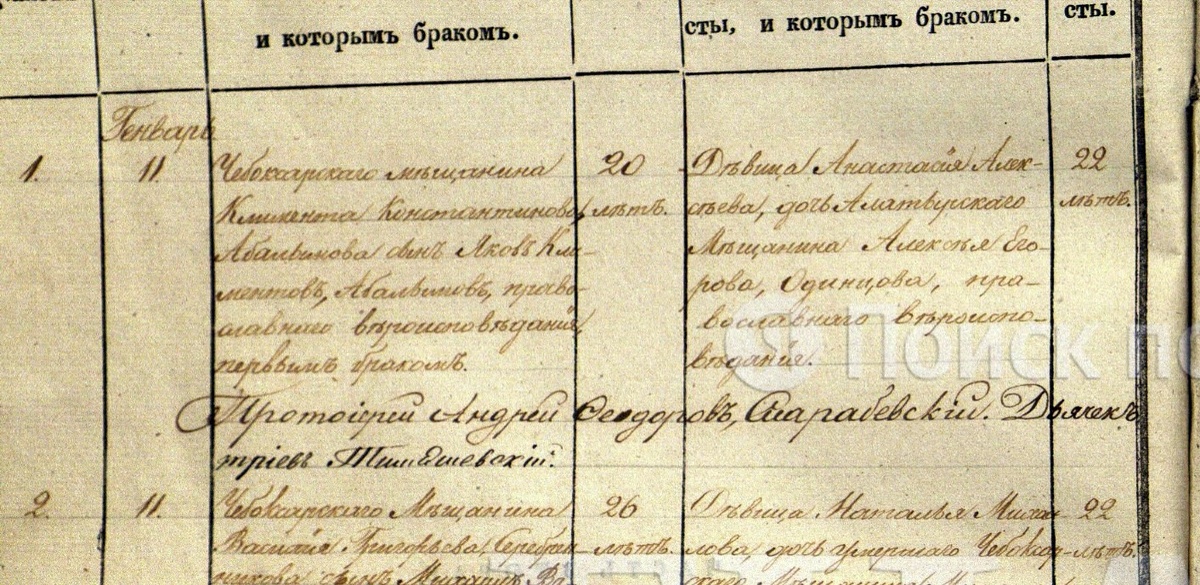 и которымъ бракомъ.
сты, и которымъ бракомъ.
сты.
Генварь
1.
11.
Чебоксарскаго мѣщанина
Климента Константинова
Абалымова сынъ Яковъ Кли-
ментовъ, Абалымовъ, право-
славнаго вѣроисповѣданія,
первымъ бракомъ.
20
лѣтъ.
Дѣвица Анастасія Алек-
сѣева, дочь Алатырскаго
Мѣщанина Алексѣя Его-
рова, Одинцова, пра-
вославнаго вѣроиспо-
вѣданія.
22
лѣтъ.
Поиск по
Протоіерей Андрей Ѳеодоровъ, Дьячекъ
тріевъ
2.
11.
Чебоксарскаго Мѣщанина
Василія Григорьева, Серебрян-
никова сынъ Михаилъ Ва
26
лѣтъ.
Дѣвица Наталья Михаи
лова, дочь умершаго Чебоксар-
скаго Мѣщанина
22
лѣтъ.